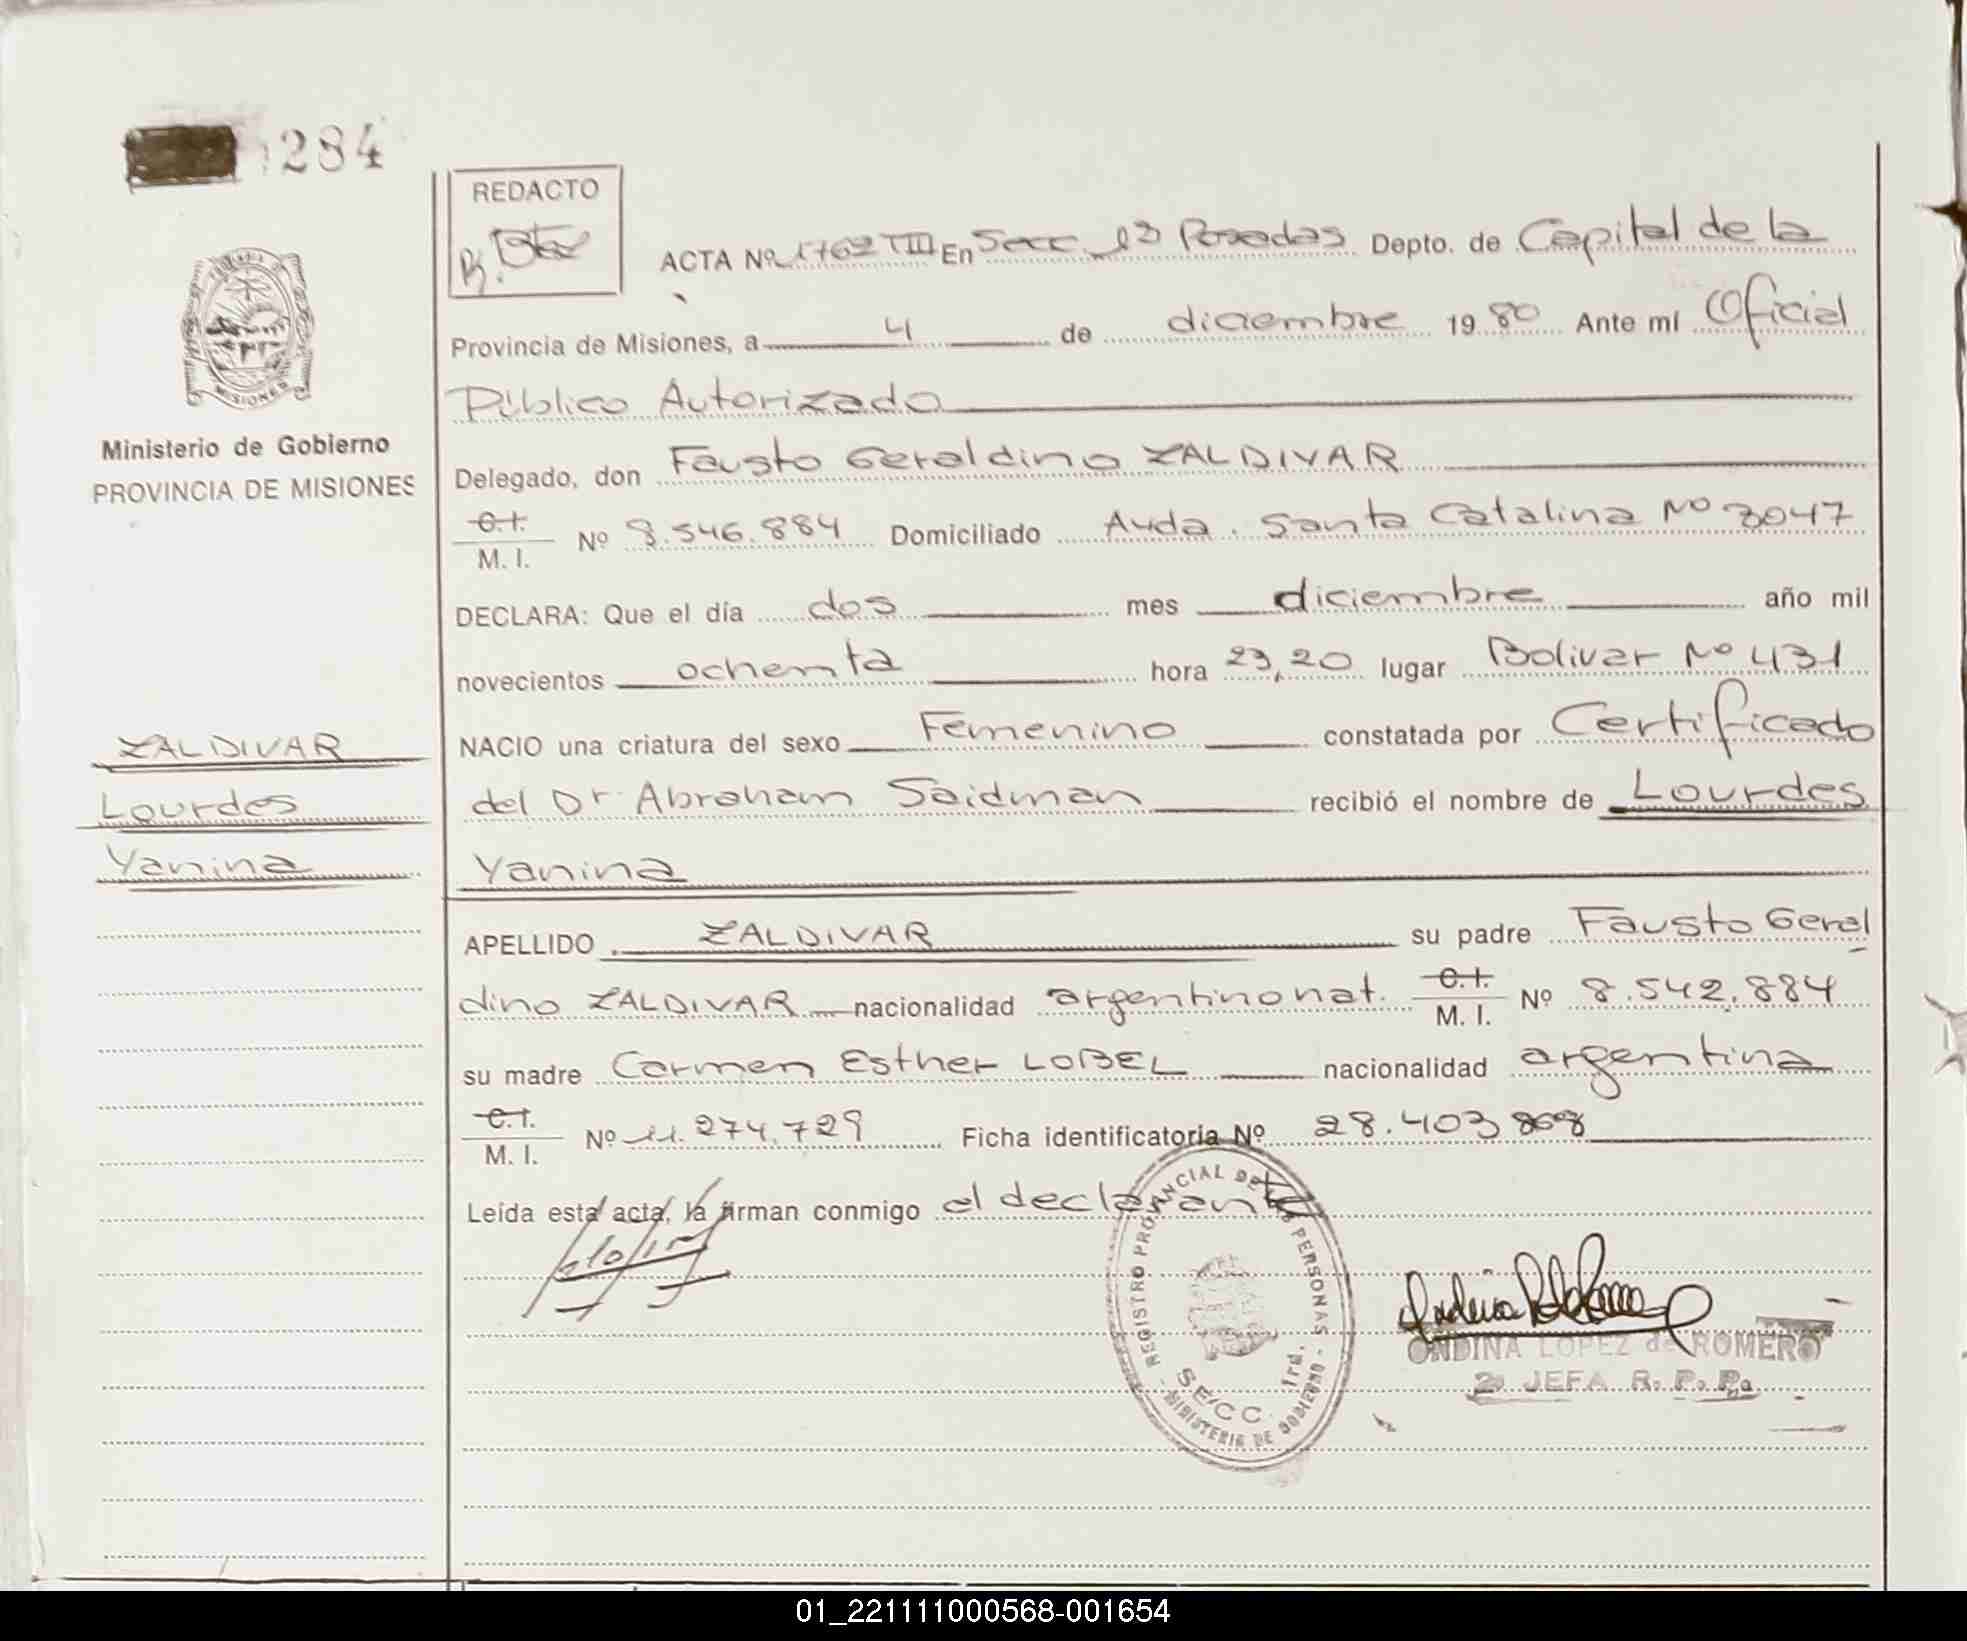 284
REDACTO
MISIONES
Ministerio de Gobierno
PROVINCIA DE MISIONES
ACTA Nº 1762 TIII En Secc. 1ª Posadas Depto. de Capital de la
Provincia de Misiones, a 4 de diciembre 1980 Ante mí Oficial
Público Autorizado
Delegado, don Fausto Geraldino ZALDIVAR
C.I.
M. I. Nº 8.546.884 Domiciliado Avda. Santa Catalina Nº 3047
DECLARA: Que el día dos mes diciembre año mil
novecientos ochenta hora 23,20 lugar Bolivar Nº 431
NACIO una criatura del sexo Femenino constatada por Certificado
del Dr. Abraham Saidman recibió el nombre de Lourdes
Yanina
ZALDIVAR
Lourdes
Yanina
APELLIDO ZALDIVAR su padre Fausto Geral
dino ZALDIVAR nacionalidad argentino nat. C.I.
M. I. Nº 8.542.884
su madre Carmen Esther LOBEL nacionalidad argentina
C.I.
M. I. Nº 11.274.729 Ficha identificatoria Nº 28.403.868
Leída esta acta, la firman conmigo el declarante
REGISTRO PROVINCIAL DE LAS PERSONAS
SECC. 1ra.
MINISTERIO DE GOBIERNO
ONDINA LOPEZ de ROMERO
2ª JEFA R. P. Ps.
01_221111000568-001654